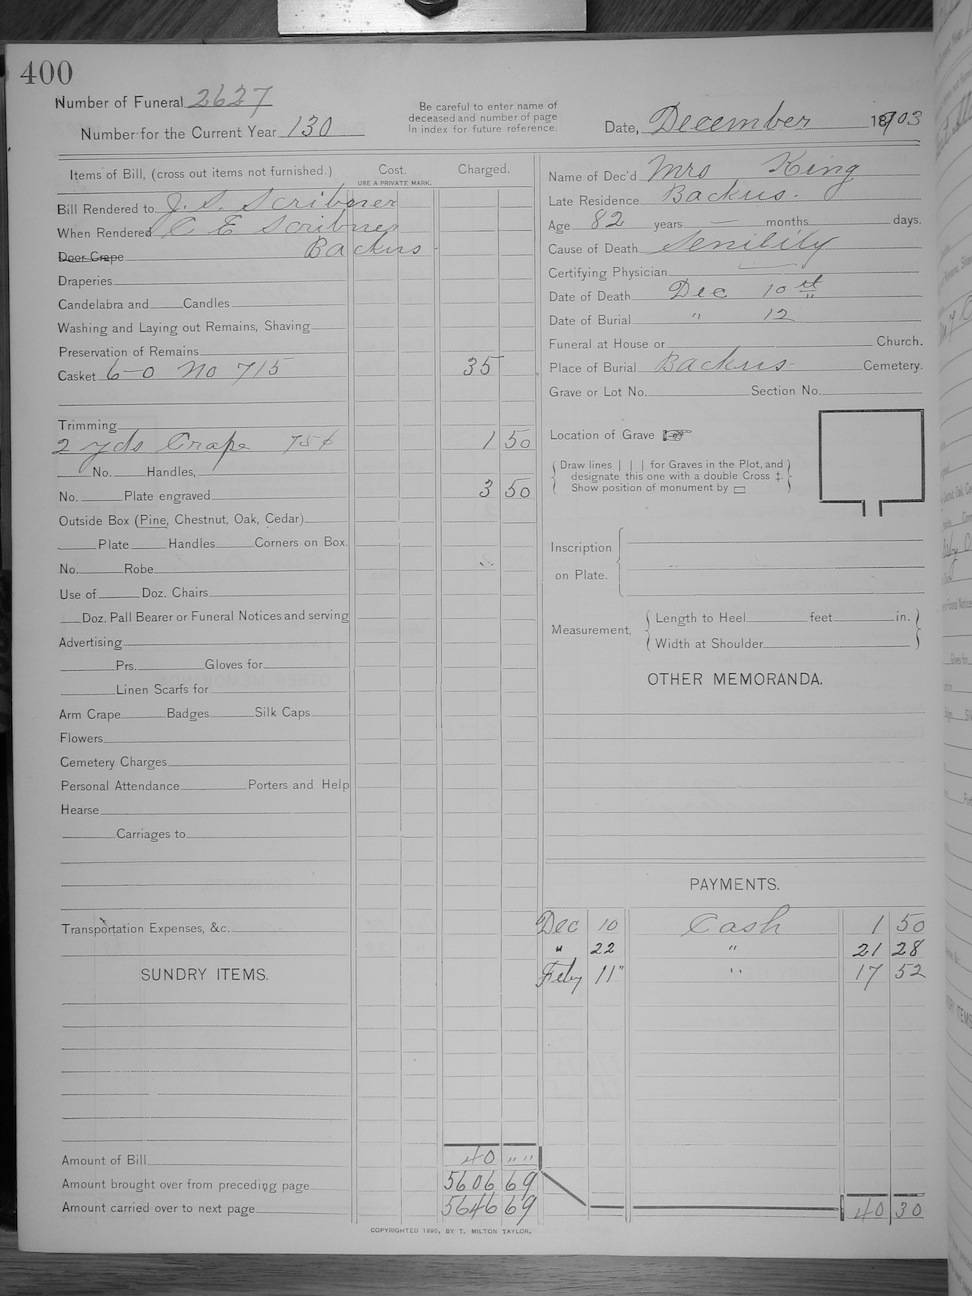 400
Number of Funeral 2627
Number for the Current Year 130
Be careful to enter name of
deceased and number of page
In index for future reference.
Date, December 1903
Items of Bill, (cross out items not furnished.) Cost. Charged.
USE A PRIVATE MARK.
Bill Rendered to J. S. Scribner
When Rendered C E Scribner
Door Crape Backus
Draperies
Candelabra and Candles
Washing and Laying out Remains, Shaving
Preservation of Remains
Casket 6-0 No 715 35
Trimming
2 yds Crape 75¢ 1 50
No. Handles,
No. Plate engraved 3 50
Outside Box (Pine, Chestnut, Oak, Cedar)
Plate Handles Corners on Box.
No. Robe
Use of Doz. Chairs
Doz. Pall Bearer or Funeral Notices and serving
Advertising
Prs. Gloves for
Linen Scarfs for
Arm Crape Badges Silk Caps
Flowers
Cemetery Charges
Personal Attendance Porters and Help
Hearse
Carriages to
Transportation Expenses, &c.
SUNDRY ITEMS.
Amount of Bill 40 " "
Amount brought over from preceding page 5606 69
Amount carried over to next page 5646 69
Name of Dec'd Mrs King
Late Residence Backus.
Age 82 years — months days.
Cause of Death Senility
Certifying Physician —
Date of Death Dec 10th
Date of Burial " 12
Funeral at House or Church.
Place of Burial Backus Cemetery.
Grave or Lot No. Section No.
Location of Grave ☞
Draw lines | | | for Graves in the Plot, and
designate this one with a double Cross ‡.
Show position of monument by ▭
Inscription
on Plate.
Measurement, Length to Heel feet in.
Width at Shoulder
OTHER MEMORANDA.
PAYMENTS.
Dec 10 Cash 1 50
" 22 " 21 28
Feby 11" " 17 52
40 30
COPYRIGHTED 1890, BY T. MILTON TAYLOR.